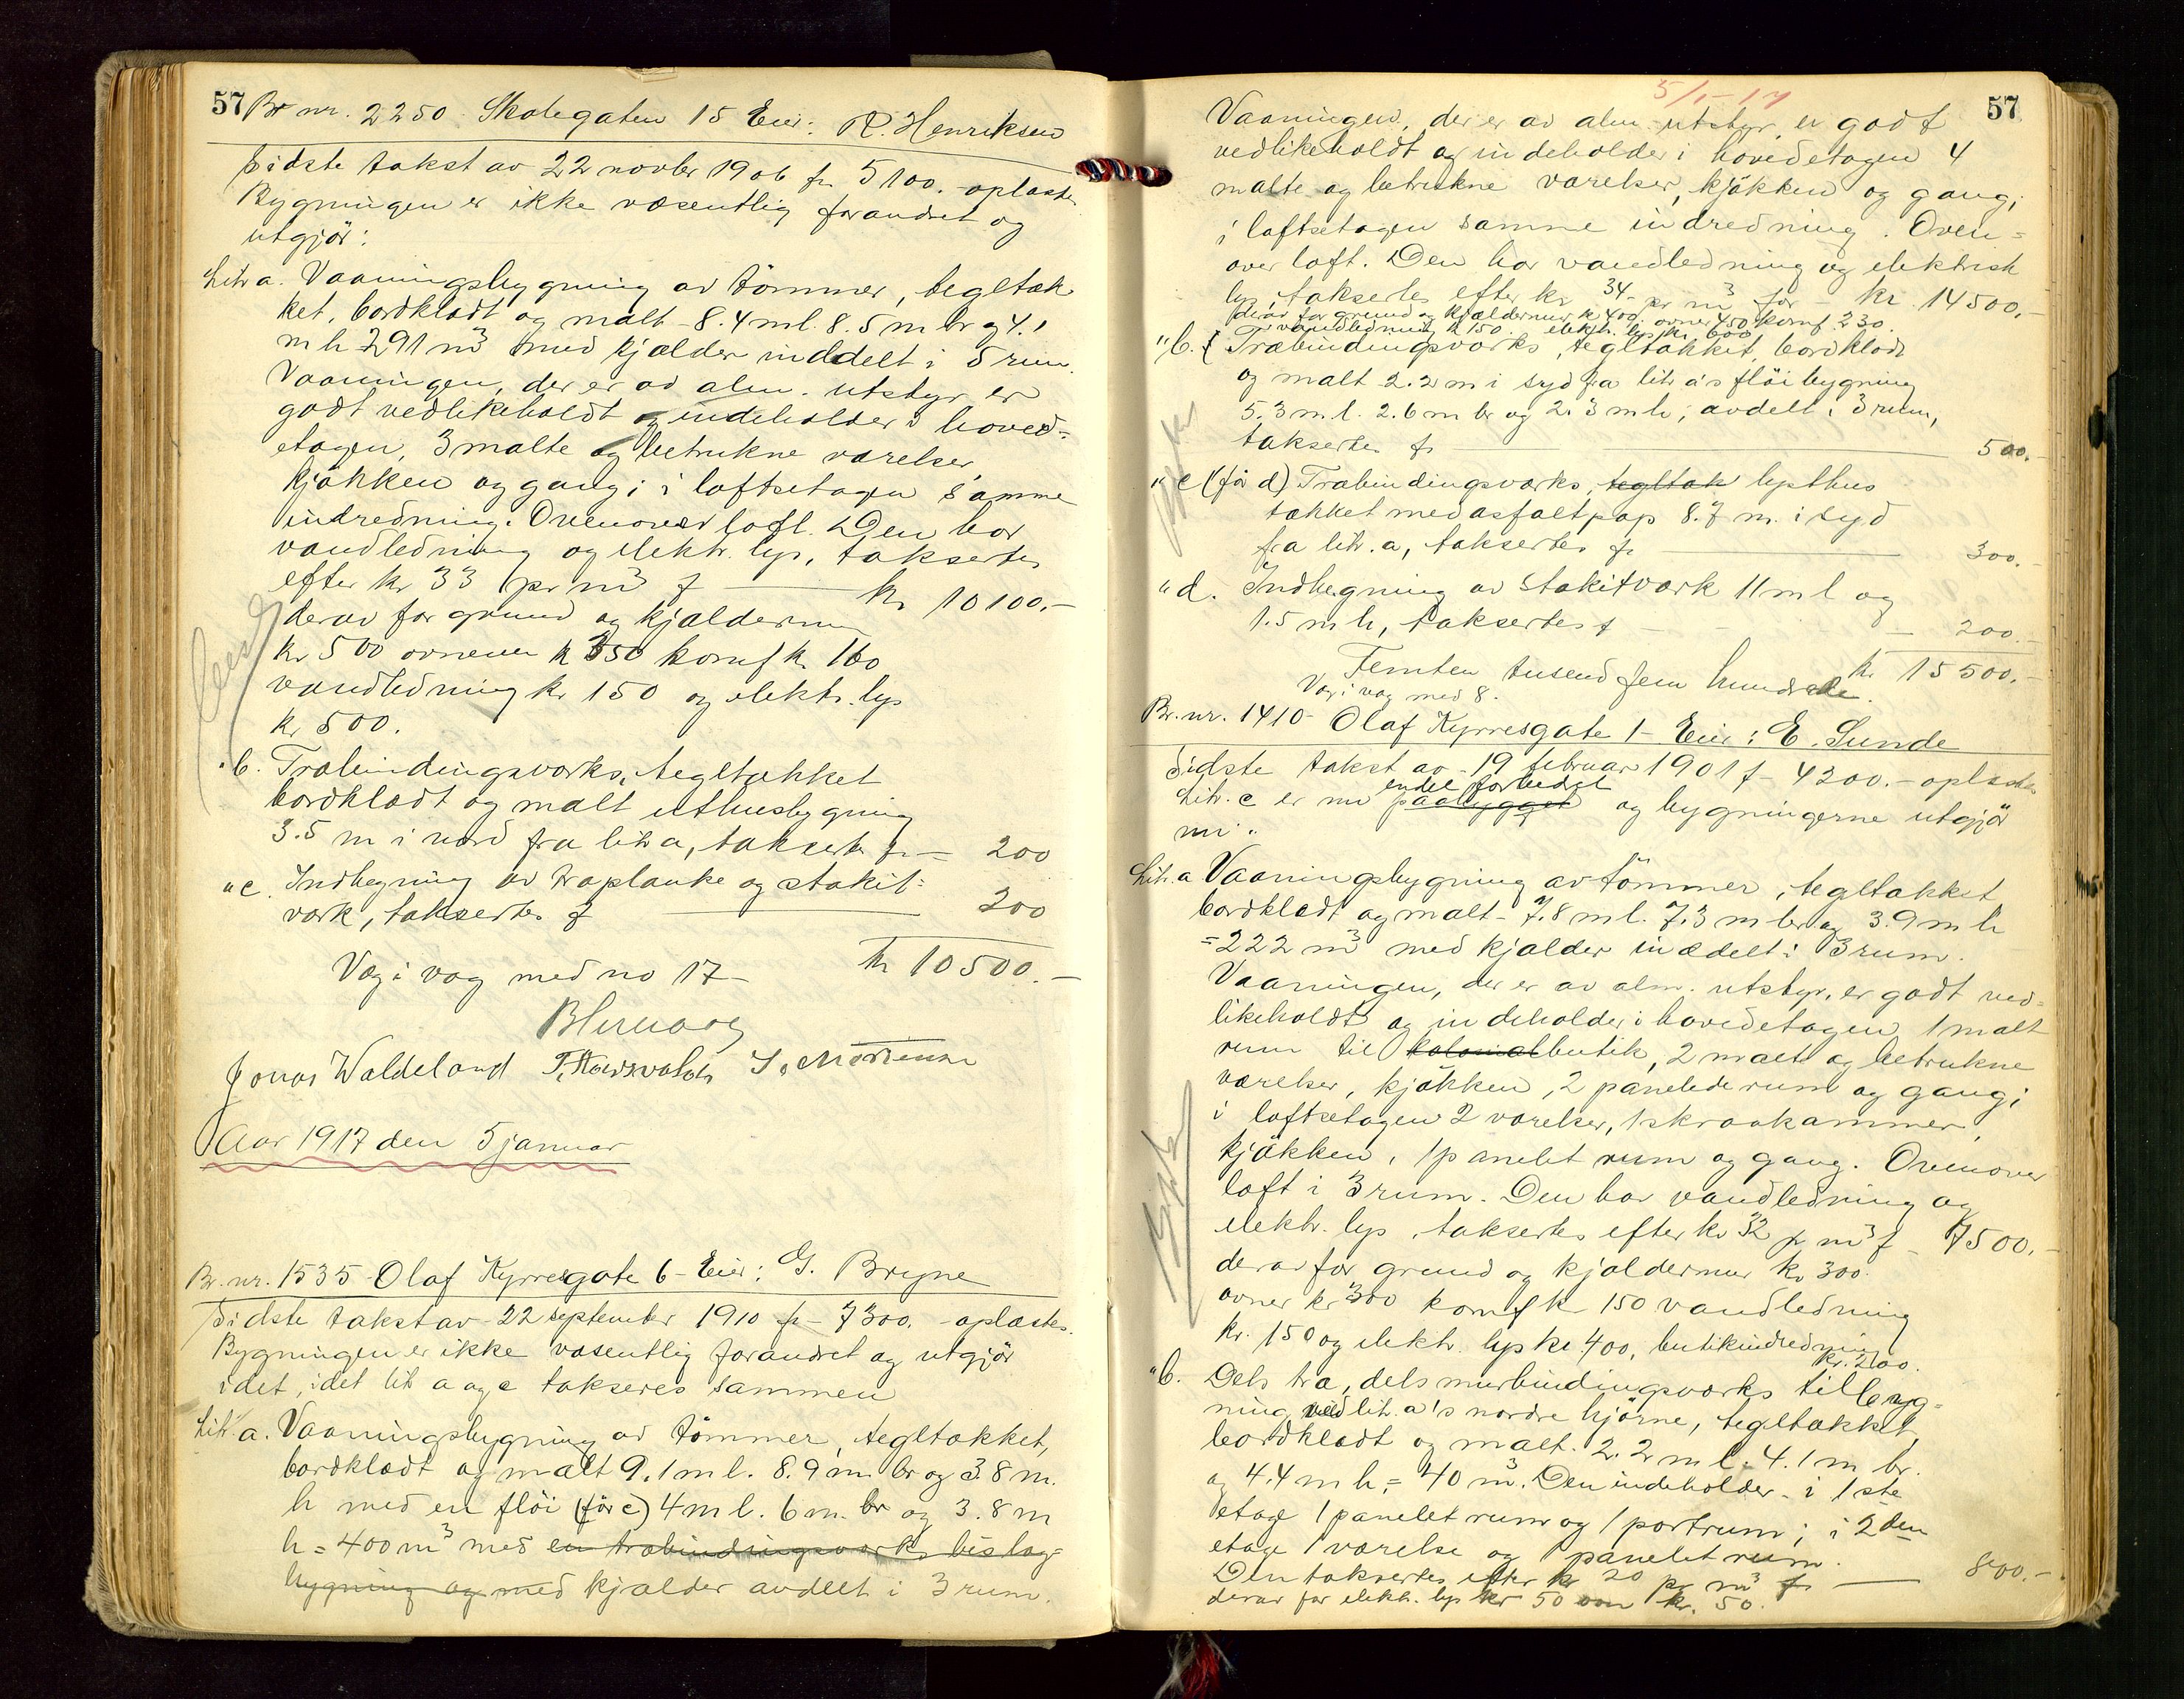 57 Br nr. 2250 Skolegaten 15 Eier: R. Henriksen
Sidste takst av 22 novbr 1906 fr 5100.- oplæstes
Bygningen er ikke væsentlig forandret og
utgjör:
Litr a. Vaaningsbygning av tömmer, tegltæk-
ket, bordklædt og malt - 8.4 m l. 8.5 m br og 4.1
m h 291 m3 med kjælder inddelt i 5 rum.
Vaaningen, der er av alm. utstyr er
godt vedlikeholdt og indeholder i hoved-
etagen, 3 malte og betrukne værelser,
kjökken og gang; i loftsetagen samme
indredning. Ovenover loft. Den har
vandledning og elektr. lys, taksertes
efter kr 33 pr m3 f kr 10100.-
derav for grund og kjældermur
kr 500 ovnene kr 350 komf kr 160
vandledning kr 150 og elektr. lys
kr 500.
" b. Træbindingsværks, tegltækket
bordklædt og malt uthusbygning
3.5 m i nord fra litr a, taksertes fr - 200
" c. Indhegning av træplanke og stakit-
værk, taksertes f 200
kr 10500.-
Væg i væg med no 17-
Jonas Waldeland T. Hadsvalds J. Mortensen
Aar 1917 den 5 januar
Br. nr. 1535 Olaf Kyrresgate 6 - Eier: G. Bryne
Sidste takst av 22 september 1910 fr - 7300. - oplæstes.
Bygningen er ikke væsentlig forandret og utgjör
idet, idet litr a og c takseres sammen
Litr a. Vaaningsbygning av tömmer, tegltækket,
bordklædt og malt 9.1 m l. 8.9 m br og 3.8 m.
h med en flöi (för c) 4 m l. 6 m. br og 3.8 m
h = 400 m3 med en træbindingsværks bislag-
bygning og med kjælder avdelt i 3 rum.
5/1-17
57
Vaaningen, der er av alm. utstyr, er godt
vedlikeholdt og indeholder i hovedetagen 4
malte og betrukne værelser, kjökken og gang,
i loftsetagen samme indredning. Oven-
over loft. Den har vandledning og elektrisk
lys, taksertes efter kr 34- pr m3 for - kr 14500.-
derav for grund og kjældermur kr 400. ovner 450 komf 230.
vandledning kr 150. elektr. lys kr 600
" b. Træbindingsværks, tegltækket, bordklædt
og malt 2.2 m i syd fra litr a's flöibygning
5.3 m l. 2.6 m br og 2.3 m h, avdelt i 3 rum,
taksertes fr 500.-
" c (för d) Træbindingsværks, tegltæk lysthus
tækket med asfaltpap 8.7 m. i syd
fra litr. a, taksertes fr 300.-
" d. Indhegning av stakitværk 11 m l og
1.5 m h, taksertes f 200.-
kr 15500.-
Femten tusend fem hundrede
Væg i væg med 8.
Br. nr. 1410 - Olaf Kyrresgate 1 - Eier: E. Sunde
Sidste takst av 19 februar 1901 f - 4200.- oplæstes
endel forbedret
Litr. c er nu paabygget og bygningerne utgjör
nu:
Litr. a Vaaningsbygning av tömmer, tegltækket
bordklædt og malt - 7.8 m l. 7.3 m br og 3.9 m h
= 222 m3 med kjælder inddelt i 3 rum.
Vaaningen, der er av alm. utstyr, er godt ved-
likeholdt og indeholder i hovedetagen 1 malt
rum til kolonialbutik, 2 malte og betrukne
værelser, kjökken, 2 panelede rum og gang;
i loftsetagen 2 værelser, 1 skraakammer,
kjökken, 1 panelet rum og gang. Ovenover
loft i 3 rum. Den har vandledning og
elektr. lys, taksertes efter kr 32 pr m3 f - 7500.-
derav for grund og kjældermur kr 300.
ovner kr 300 komf kr 150 vandledning
kr. 150 og elektr. lys kr 400, butikindredning
kr. 200.
" b. Dels træ, dels murbindingsværks tilbyg-
ning ved litr. a's nordre hjörne, tegltækket,
bordklædt og malt. 2.2 m l. 4.1 m br.
og 4.4 m h = 40 m3. Den indeholder i 1ste
etage 1 panelet rum og 1 portrum; i 2den
etage 1 værelse og 1 panelet rum.
Den taksertes efter kr 20 pr m3 fr 800.-
derav for elektr. lys kr 50 ovn kr. 50.